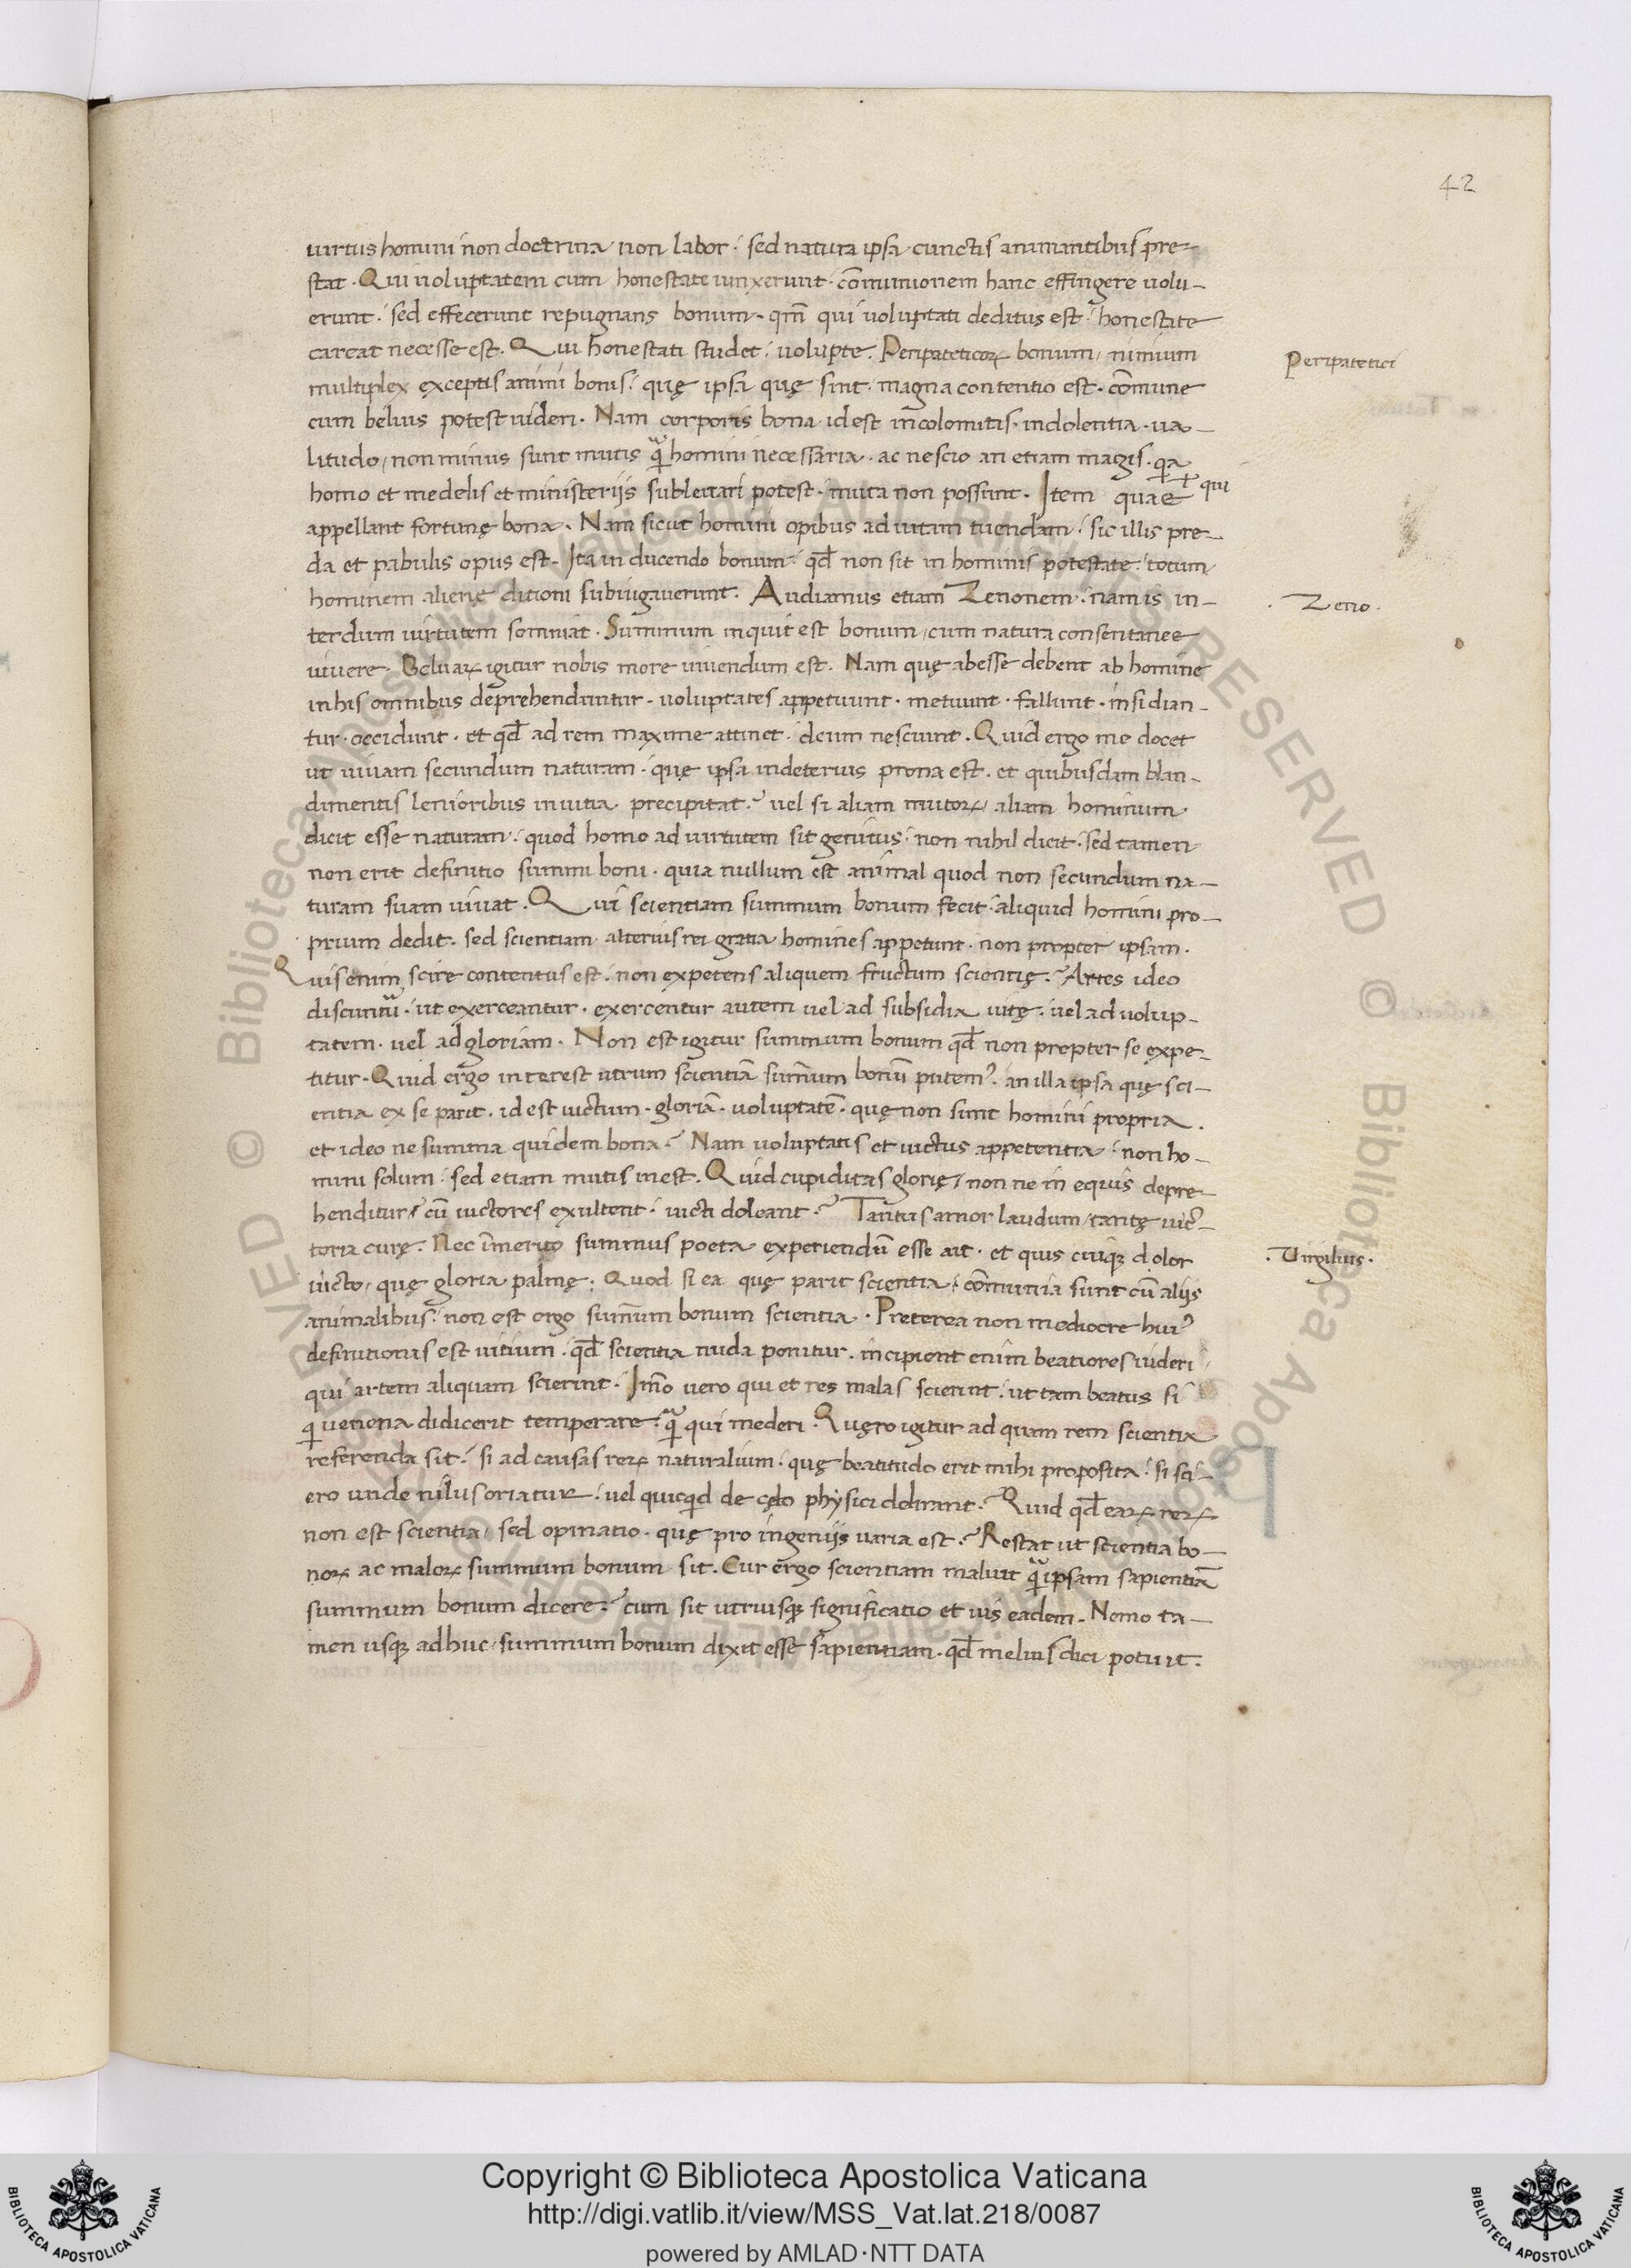 42
uirtus homini non doctrina non labor. sed natura ipsa cunctis animantibus pre-
stat. Qui uoluptatem cum honestate iunxerunt. cōmunionem hanc effingere uolu-
erunt. sed effecerunt repugnans bonum. qm̄ qui uoluptati deditus est honestate
careat necesse est. Qui honestati studet. uolupte. Peripateticoꝝ bonum nimium
Peripatetici
multiplex exceptis animi bonis. quę ipsa quę sint magna contentio est. cōmune
cum beluis potest uideri. Nam corporis bona id est incolomitis. indolentia. ua-
litudo, non minus sunt mutis q̄ homini necessaria. ac nescio an etiam magis. qa
homo et medelis et ministeriis subleuari potest. muta non possunt. Item quae
qui
appellant fortunę bona. Nam sicut homini opibus ad uitam tuendam. sic illis pre-
da et pabulis opus est. Ita in ducendo bonum. qđ non sit in hominis potestate. totum
hominem alienę ditioni subiugauerunt. Audiamus etiam Zenonem. nam is in-
. Zeno.
terdum uirtutem somniat. Summum inquit est bonum, cum natura consentanee
uiuere. Beluaꝝ igitur nobis more uiuendum est. Nam quę abesse debent ab homine
in his omnibus deprehenduntur. uoluptates appetuunt. metuunt. fallunt. insidian-
tur. occidunt. et qđ ad rem maxime attinet. deum nesciunt. Quid ergo me docet
ut uiuam secundum naturam. quę ipsa indeterius prona est. et quibusdam blan-
dimentis lenioribus in uitia precipitat? uel si aliam mutoꝝ, aliam hominum
dicit esse naturam. quod homo ad uirtutem sit genitus. non nihil dicit. sed tamen
non erit definitio summi boni. quia nullum est animal quod non secundum na-
turam suam uiuat. Qui scientiam summum bonum fecit. aliquid homini pro-
prium dedit. sed scientiam alterius rei gratia homines appetunt. non propter ipsam.
Quis enim scire contentus est. non expetens aliquem fructum scientię? Artes ideo
discuntur. ut exerceantur. exercentur autem uel ad subsidia uitę. uel ad uolup-
tatem. uel ad gloriam. Non est igitur summum bonum qđ non propter se expe-
titur. Quid ergo interest utrum scientiā sum̄um bonū putem9. an illa ipsa quę sci-
entia ex se parit. id est uictum. gloriā. uoluptatē. quę non sunt homini propria.
et ideo ne summa quidem bona? Nam uoluptatis et uictus appetentia. non ho-
mini solum. sed etiam mutis inest. Quid cupiditas glorię, non ne in equis depre-
henditur, cū uictores exultent. uicti doleant? Tantus amor laudum, tantę uic-
toria curę. Nec īmerito summus poeta experiendū esse ait. et quis cuiqꝫ dolor
. Virgilius.
uicto, quę gloria palmę. Quod si ea quę parit scientia. cōmunia sunt cū aliis
animalibus. non est ergo sum̄um bonum scientia. Preterea non mediocre hui9
definitionis est uitium. qđ scientia nuda ponitur. incipient enim beatiores uideri
qui artem aliquam scierint. Im̄o uero qui et res malas scierint. ut tam beatus si
q uenena didicerit temperare. q̄ qui mederi. Quęro igitur ad quam rem scientia
referenda sit. si ad causas reꝝ naturalium. quę beatitudo erit mihi proposita. si sci-
ero unde nilus oriatur. uel quicqd de cęlo physici delirant. Quid qđ eaꝝ reꝝ
non est scientia, sed opinatio. quę pro ingeniis uaria est? Restat ut scientia bo-
noꝝ ac maloꝝ summum bonum sit. Cur ergo scientiam maluit q̄ ipsam sapientiā
summum bonum dicere? cum sit utriusqꝫ significatio et uis eadem. Nemo ta-
men usqꝫ adhuc summum bonum dixit esse sapientiam. qđ melius dici potuit.
Copyright © Biblioteca Apostolica Vaticana
http://digi.vatlib.it/view/MSS_Vat.lat.218/0087
powered by AMLAD·NTT DATA